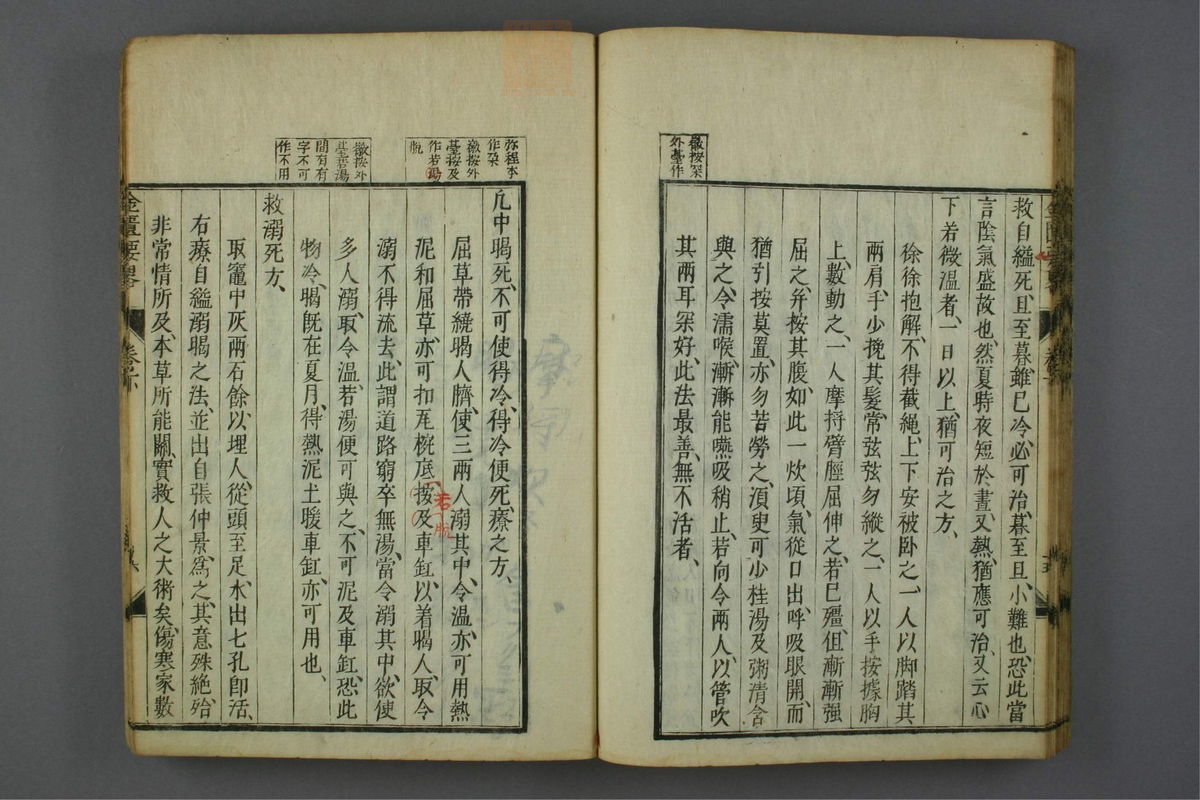 徽按罙
外臺作
救自縊死、旦至暮、雖已冷必可治、暮至旦、小難也、恐此當
言陰氣盛故也、然夏時夜短於晝、又熱、猶應可治、又云心
下若微温者、一日以上、猶可治之方、
徐徐抱解、不得截繩、上下安被臥之、一人以脚踏其
兩肩、手少挽其髮、常弦弦勿縱之、一人以手按據胸
上、數動之、一人摩捋臂脛屈伸之、若已殭、但漸漸强
屈之、并按其腹、如此一炊頃、氣從口出、呼吸眼開、而
猶引按莫置、亦勿苦勞之、須臾可少桂湯及粥清含
與之、令濡喉、漸漸能嚥、及稍止、若向令兩人、以管吹
其兩耳罙好、此法最善、無不活者、
弥程本
作罙
徽按外
臺按及
作若湯
脫
徽按外
臺若湯
間有有
字不可
作不用
凢中暍死、不可使得冷、得冷便死、療之方、
屈草帶繞暍人臍、使三兩人溺其中、令温、亦可用熱
泥和屈草、亦可扣瓦椀底、按及車缸、以着暍人、取令
若脫
溺不得流去、此謂道路窮卒無湯、當令溺其中、欲使
多人溺、取令温、若湯便可與之、不可泥及車缸、恐此
物冷、暍既在夏月、得熱泥土暖車缸、亦可用也、
救溺死方、
取竈中灰兩石餘、以埋人、從頭至足、水出七孔即活、
右療自縊溺暍之法、並出自張仲景、爲之、其意殊絶、殆
非常情所及、本草所能關、實救人之大術矣、傷寒家數
金匱要略 卷之下